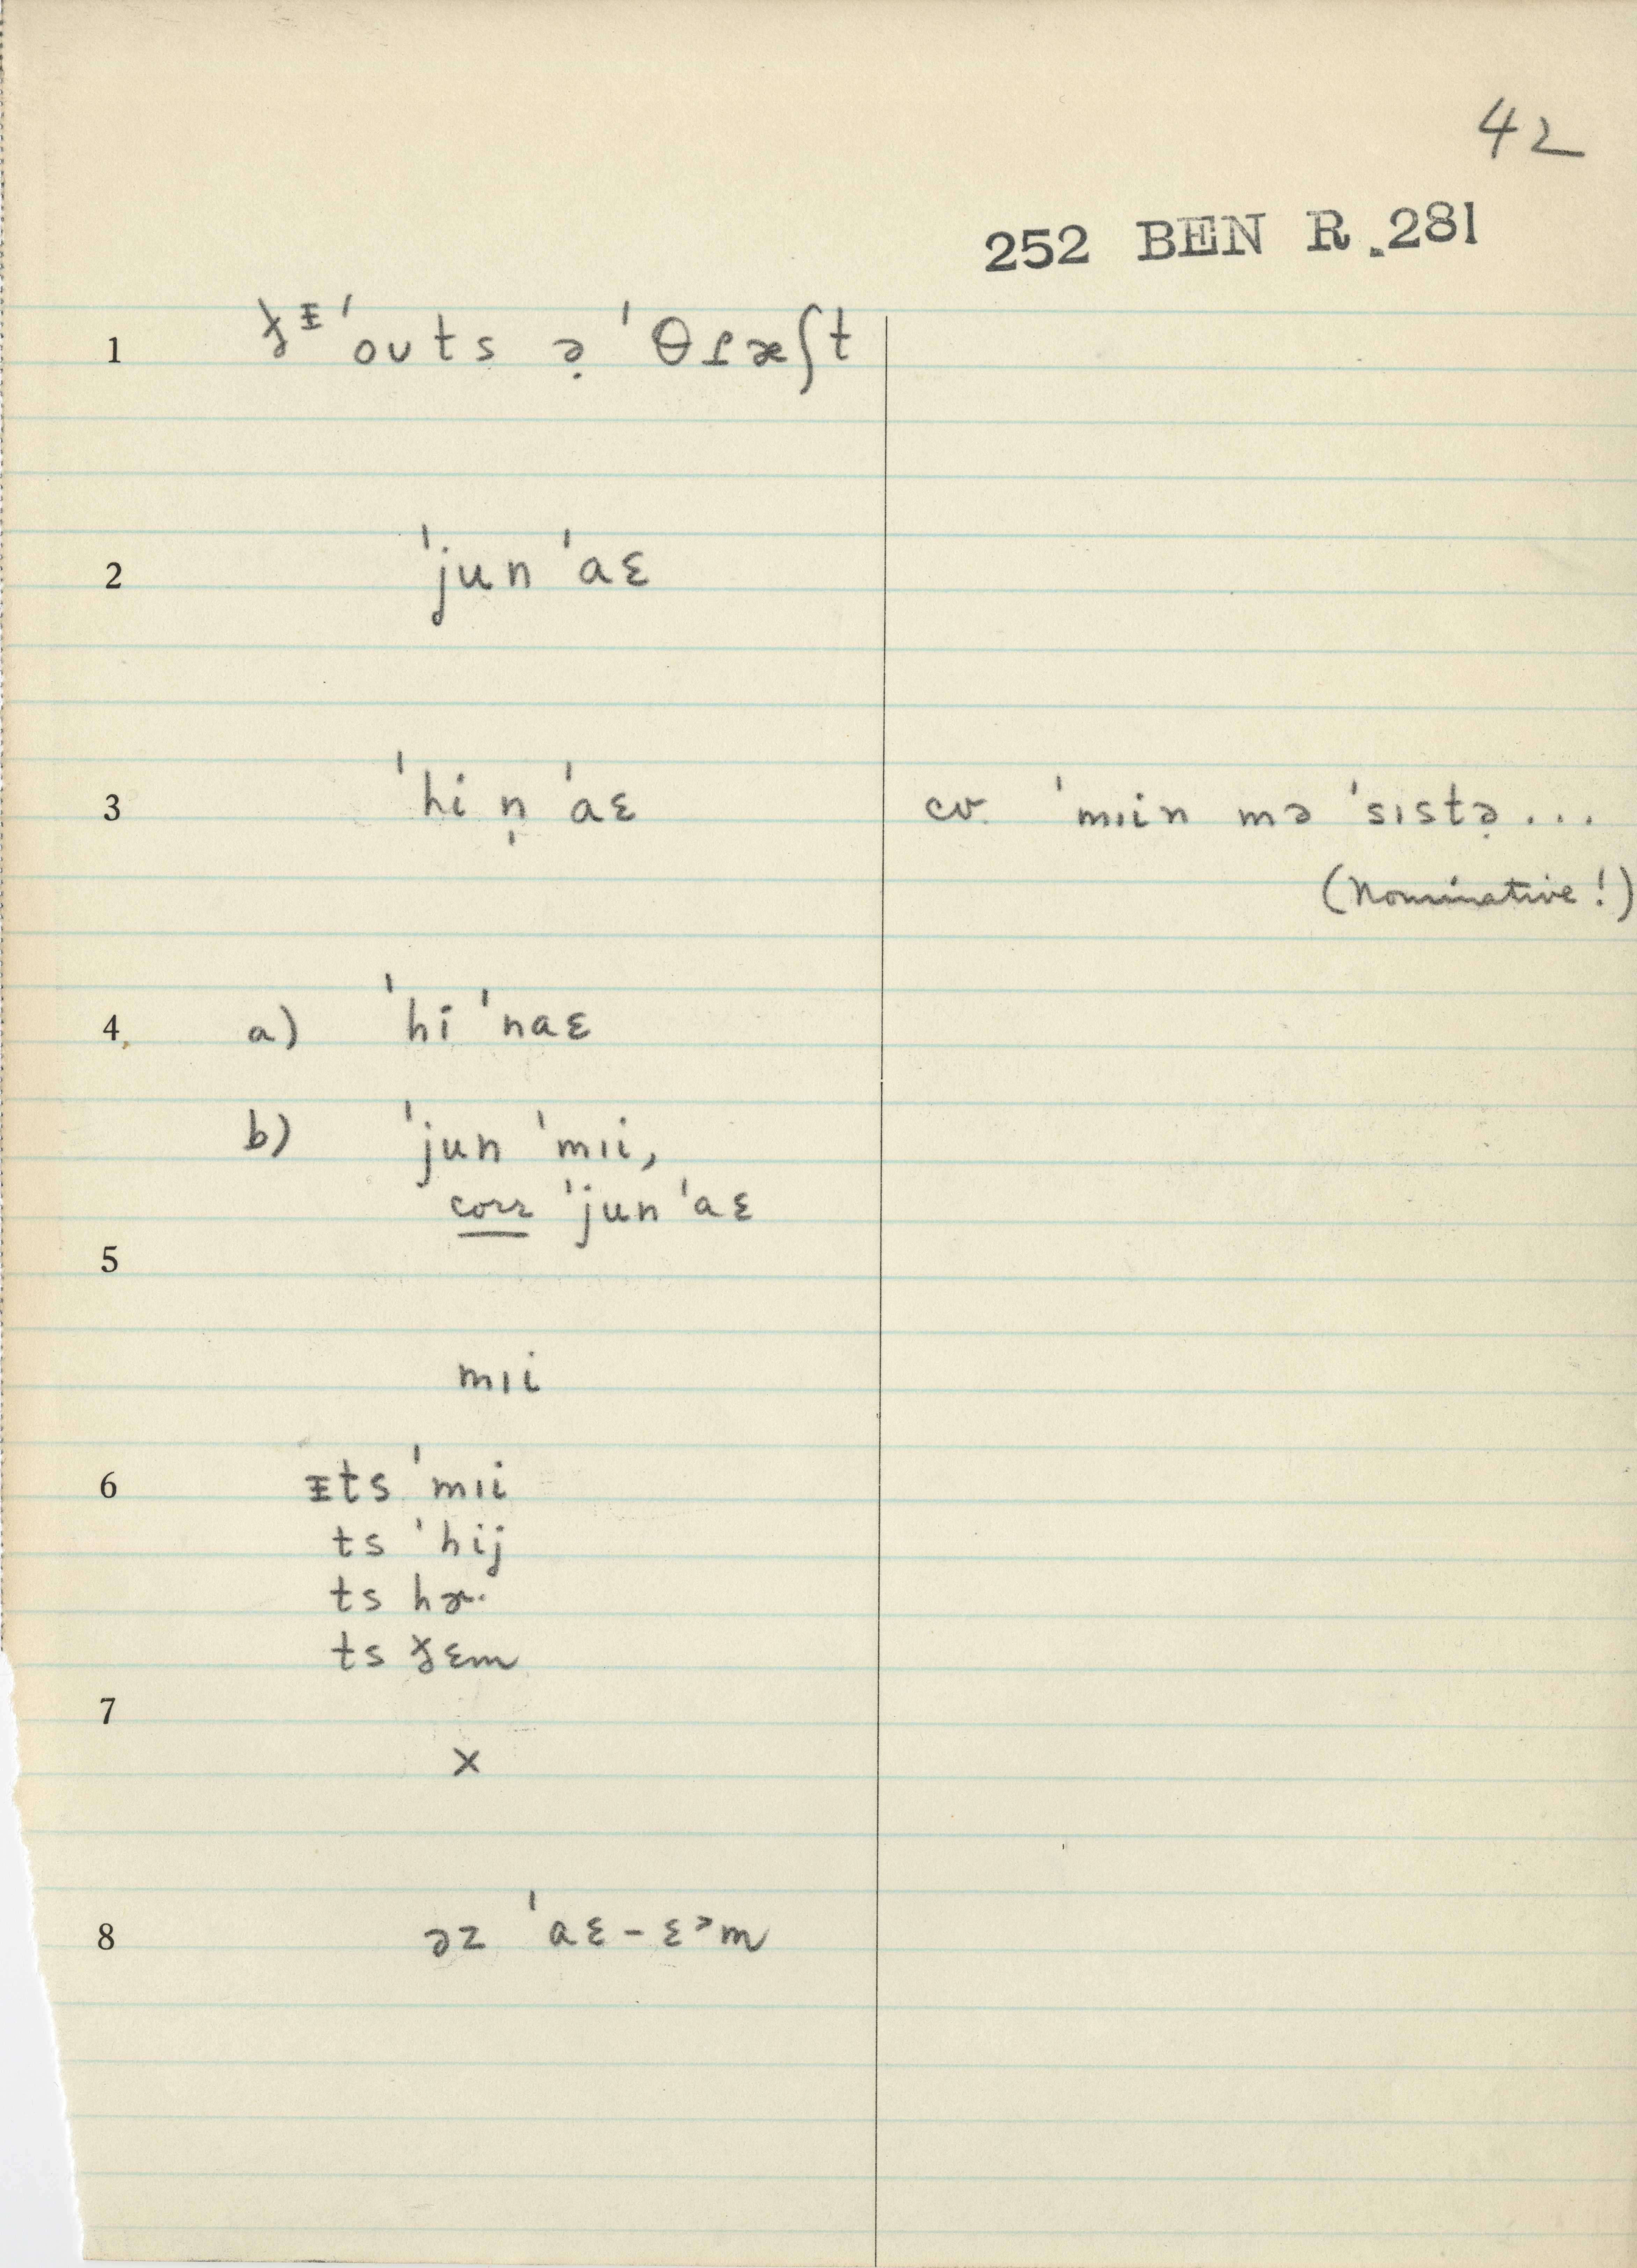 42
252 BEN R.281
1 ɣᵻˈouts ə̣ ˈθɹæʃt
2 ˈjun ˈaɛ
3 ˈhi n̩ ˈaɛ cv. ˈmɪin mə ˈsɪstə̣...
(Nominative!)
4 a) ˈhi ˈnaɛ
b) ˈjun ˈmɪi,
corr ˈjun ˈaɛ
5
mɪi
6 ᵻts ˈmɪi
ts ˈhij
ts hɚ.
ts ɛm
7
x
8 əz ˈaɛ-ɛᵊm